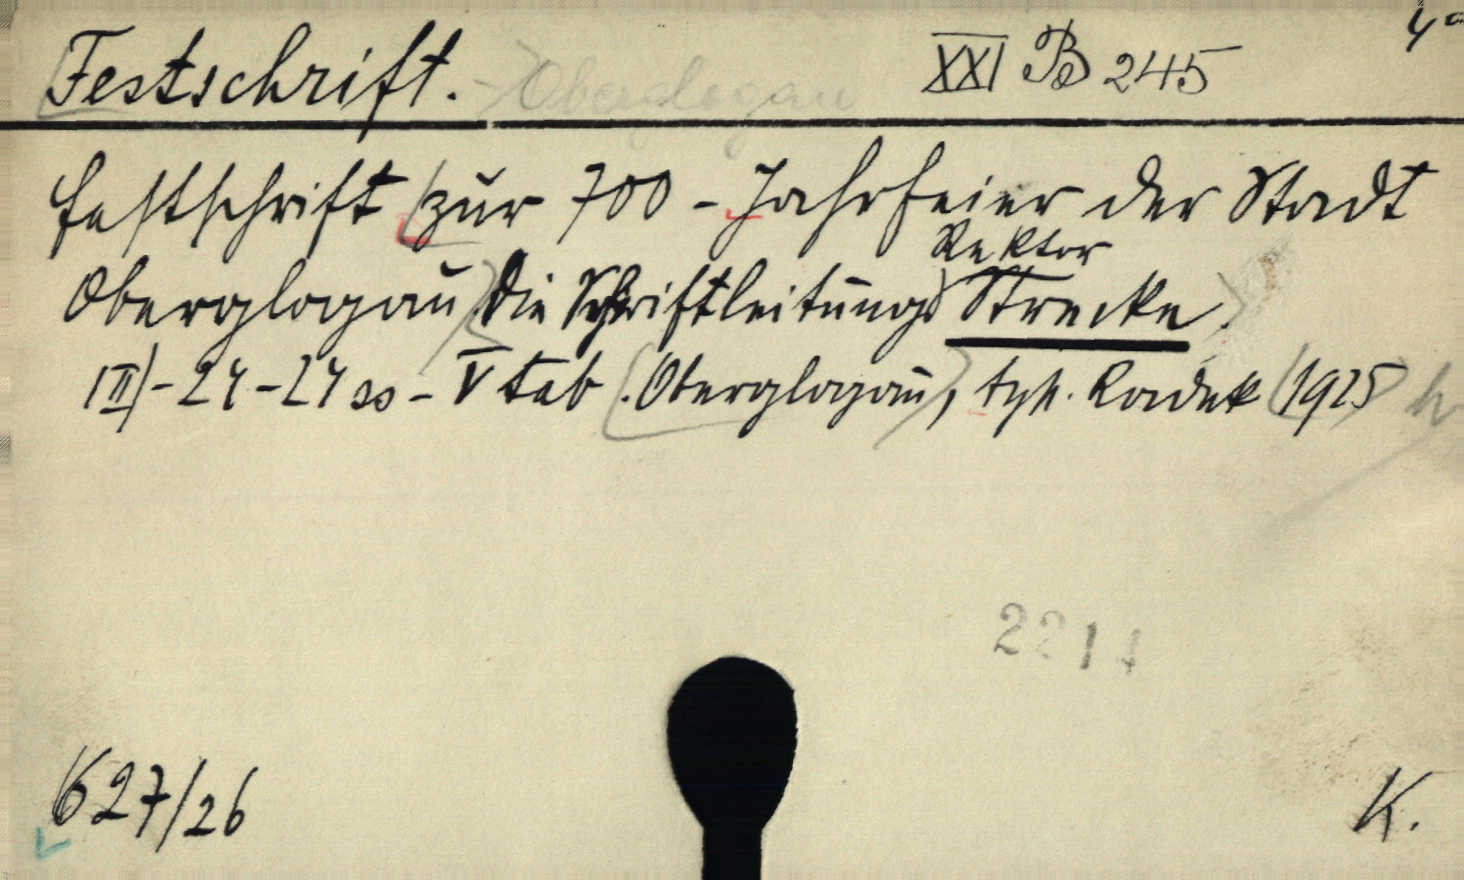 4°
Festschrift. - Oberglogau XXI B 245
Festschrift zur 700-Jahrfeier der Stadt
Rektor
Oberglogau Die Schriftleitung Strecke.
III) - 24 - 24 ss - V tab. Oberglogau, typ. Radek 1925
2214
627/26 K.